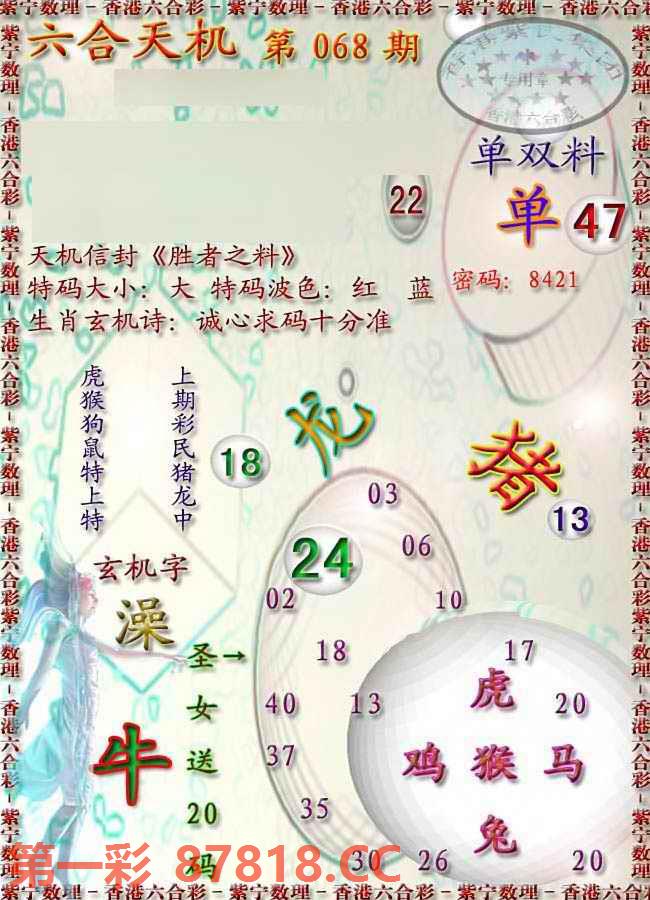 紫宁数理－香港六合彩－紫宁数理－香港六合彩－紫宁数理－香港六合彩
六合天机 第 068 期
专用章
香港六合彩
单双料
单 47
22
天机信封《胜者之料》
特码大小：大 特码波色：红 蓝
密码：8421
生肖玄机诗：诚心求码十分准
虎猴狗鼠特上特
上期彩民猪龙中
龙
猪
18
13
03
24
06
02
10
玄机字
澡
圣女送20码
→
18
17
虎
40
13
20
牛
37
鸡 猴 马
35
兔
30
26
20
第一彩 87818.CC
紫宁数理－香港六合彩－紫宁数理－香港六合彩－紫宁数理－香港六合彩